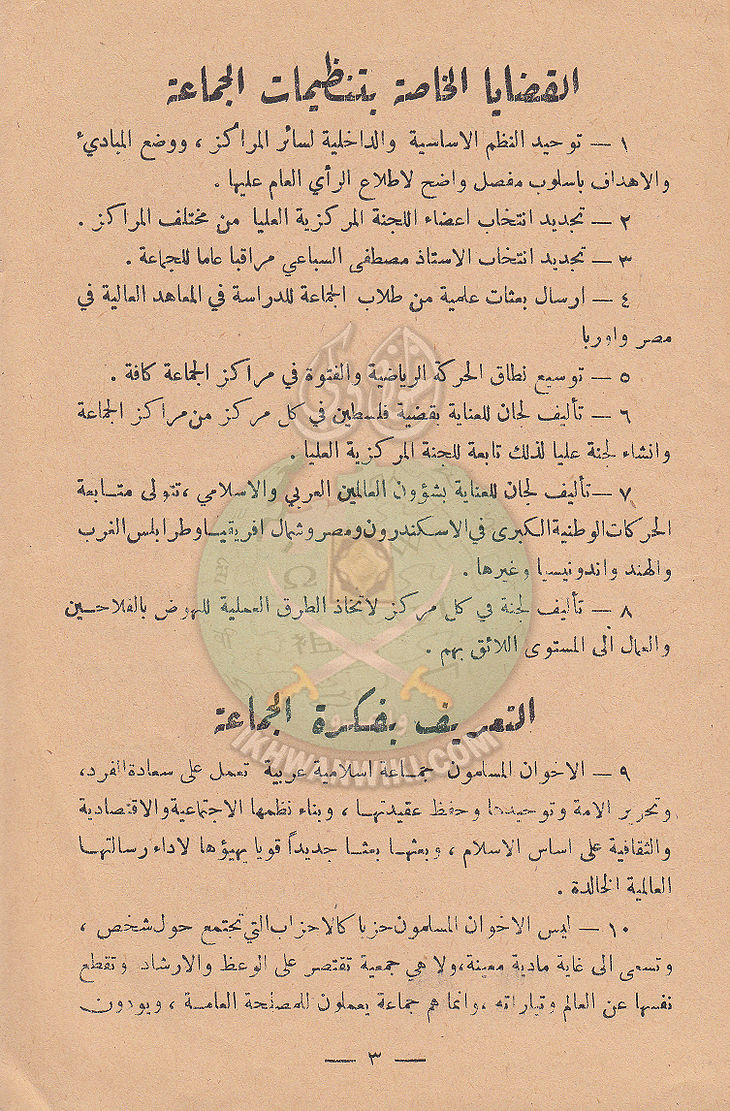 القضايا الخاصة بتنظيمات الجماعة
١ — توحيد النظم الاساسية والداخلية لسائر المراكز ، ووضع المبادىء
والاهداف باسلوب مفصل واضح لاطلاع الرأي العام عليها .
٢ — تجديد انتخاب اعضاء اللجنة المركزية العليا من مختلف المراكز .
٣ — تجديد انتخاب الاستاذ مصطفى السباعي مراقبا عاما للجماعة .
٤ — ارسال بعثات علمية من طلاب الجماعة للدراسة في المعاهد العالية في
مصر واوربا
٥ — توسيع نطاق الحركة الرياضية والفتوة في مراكز الجماعة كافة .
٦ — تأليف لجان للعناية بقضية فلسطين في كل مركز من مراكز الجماعة
وانشاء لجنة عليا لذلك تابعة للجنة المركزية العليا .
٧ — تأليف لجان للعناية بشؤون العالمين العربي والاسلامي ، تتولى متابعة
الحركات الوطنية الكبرى في الاسكندرون ومصر وشمال افريقيا وطرابلس الغرب
والهند واندونيسيا وغيرها .
٨ — تأليف لجنة في كل مركز لاتخاذ الطرق العملية للنهوض بالفلاحين
والعمال الى المستوى اللائق بهم .
التعريف بفكرة الجماعة
IKHWANWIKI.COM
٩ — الاخوان المسلمون جماعة اسلامية عربية تعمل على سعادة الفرد،
وتحرير الامة وتوحيدها وحفظ عقيدتها ، وبناء نظمها الاجتماعية والاقتصادية
والثقافية على اساس الاسلام ، وبعثها بعثا جديداً قويا يهيؤها لاداء رسالتها
العالمية الخالدة .
١٠ — ليس الاخوان المسلمون حزبا كالاحزاب التي تجتمع حول شخص ،
وتسعى الى غاية مادية معينة، ولا هي جمعية تقتصر على الوعظ والارشاد وتقطع
نفسها عن العالم وتياراته ، وانما هم جماعة يعملون للمصلحة العامة ، ويودون
— ٣ —